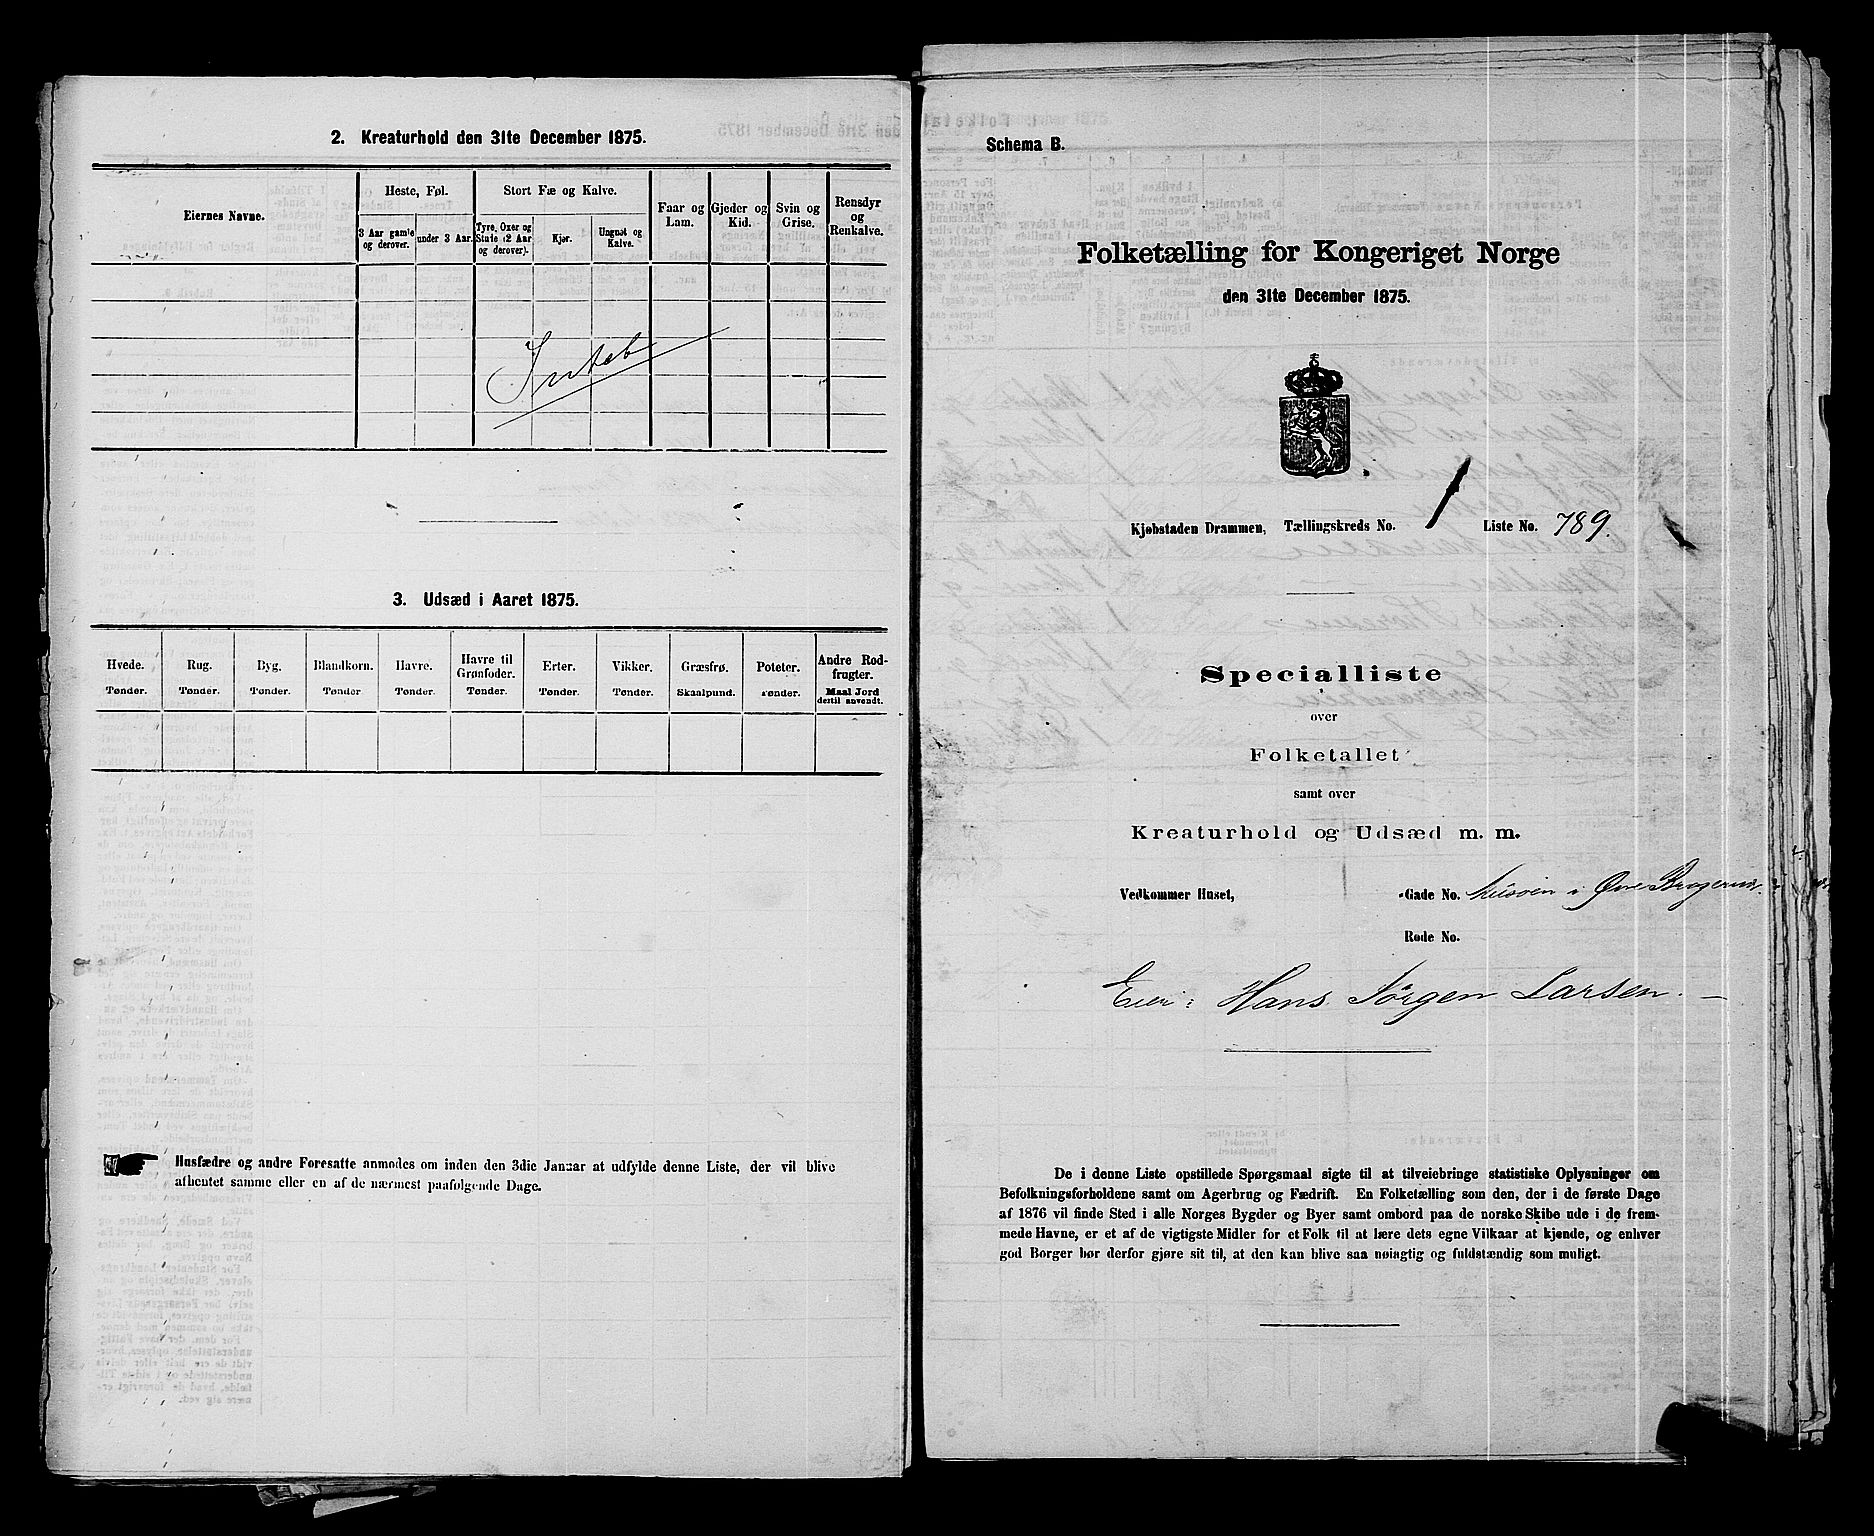 2. Kreaturhold den 31te December 1875.
Eiernes Navne.
Heste, Føl.
3 Aar gamle og derover.
under 3 Aar.
Stort Fæ og Kalve.
Tyre, Oxer og Stude (2 Aar og derover).
Kjør.
Ungnøt og Kalve.
Faar og Lam.
Gjeder og Kid.
Svin og Grise.
Rensdyr og Renkalve.
Intet
3. Udsæd i Aaret 1875.
Hvede. Tønder.
Rug. Tønder.
Byg. Tønder.
Blandkorn. Tønder
Havre. Tønder.
Havre til Grønfoder. Tønder.
Erter. Tønder.
Vikker. Tønder.
Græsfrø. Skaalpund.
Poteter. Tønder.
Andre Rodfrugter. Maal Jord dertil anvendt.
Husfædre og andre Foresatte anmodes om inden den 3die Januar at udfylde denne Liste, der vil blive
afhentet samme eller en af de nærmest paafølgende Dage.
Schema B.
Folketælling for Kongeriget Norge
den 31te December 1875.
Kjøbstaden Drammen, Tællingskreds No. 1 Liste No. 789.
Specialliste
over
Folketallet
samt over
Kreaturhold og Udsæd m. m.
Vedkommer Huset, -Gade No. Øvre
Rode No.
Eier: Hans Jørgen Larsen. —
De i denne Liste opstillede Spørgsmaal sigte til at tilveiebringe statistiske Oplysninger om
Befolkningsforholdene samt om Agerbrug og Fædrift. En Folketælling som den, der i de første Dage
af 1876 vil finde Sted i alle Norges Bygder og Byer samt ombord paa de norske Skibe ude i de frem-
mede Havne, er et af de vigtigste Midler for et Folk til at lære dets egne Vilkaar at kjende, og enhver
god Borger bør derfor gjøre sit til, at den kan blive saa nøiagtig og fuldstændig som muligt.